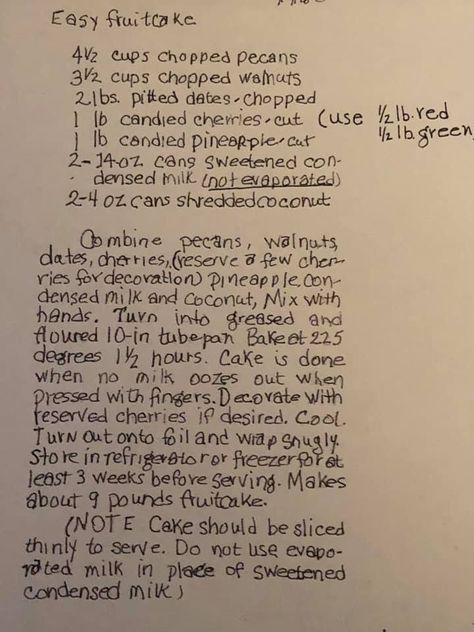 Easy fruitcake
4 1/2 cups chopped pecans
3 1/2 cups chopped walnuts
2 lbs. pitted dates-chopped
1 lb candied cherries-cut (use 1/2 lb. red
1/2 lb. green
1 lb candied pineapple-cut
2-14-oz cans sweetened con-
densed milk (not evaporated)
2-4 oz cans shredded coconut
Combine pecans, walnuts,
dates, cherries, (reserve a few cher-
ries for decoration) pineapple, con-
densed milk and coconut, Mix with
hands. Turn into greased and
floured 10-in tube pan Bake at 225
degrees 1 1/2 hours. Cake is done
when no milk oozes out when
pressed with fingers. Decorate with
reserved cherries if desired. Cool.
Turn out onto foil and wrap snugly.
Store in refrigerator or freezer for at
least 3 weeks before serving. Makes
about 9 pounds fruitcake.
(NOTE Cake should be sliced
thinly to serve. Do not use evapo-
rated milk in place of sweetened
condensed milk)